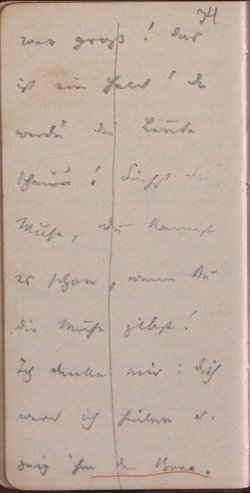 34
war groß! Das
ist ein Held! da
werde die Leute
schauen! Suchst du
Muse, du kannst
es schon, wenn du
dir Mühe gibst!
Ich denke mir: dich
werd ich heilen u.
zeig ihm den